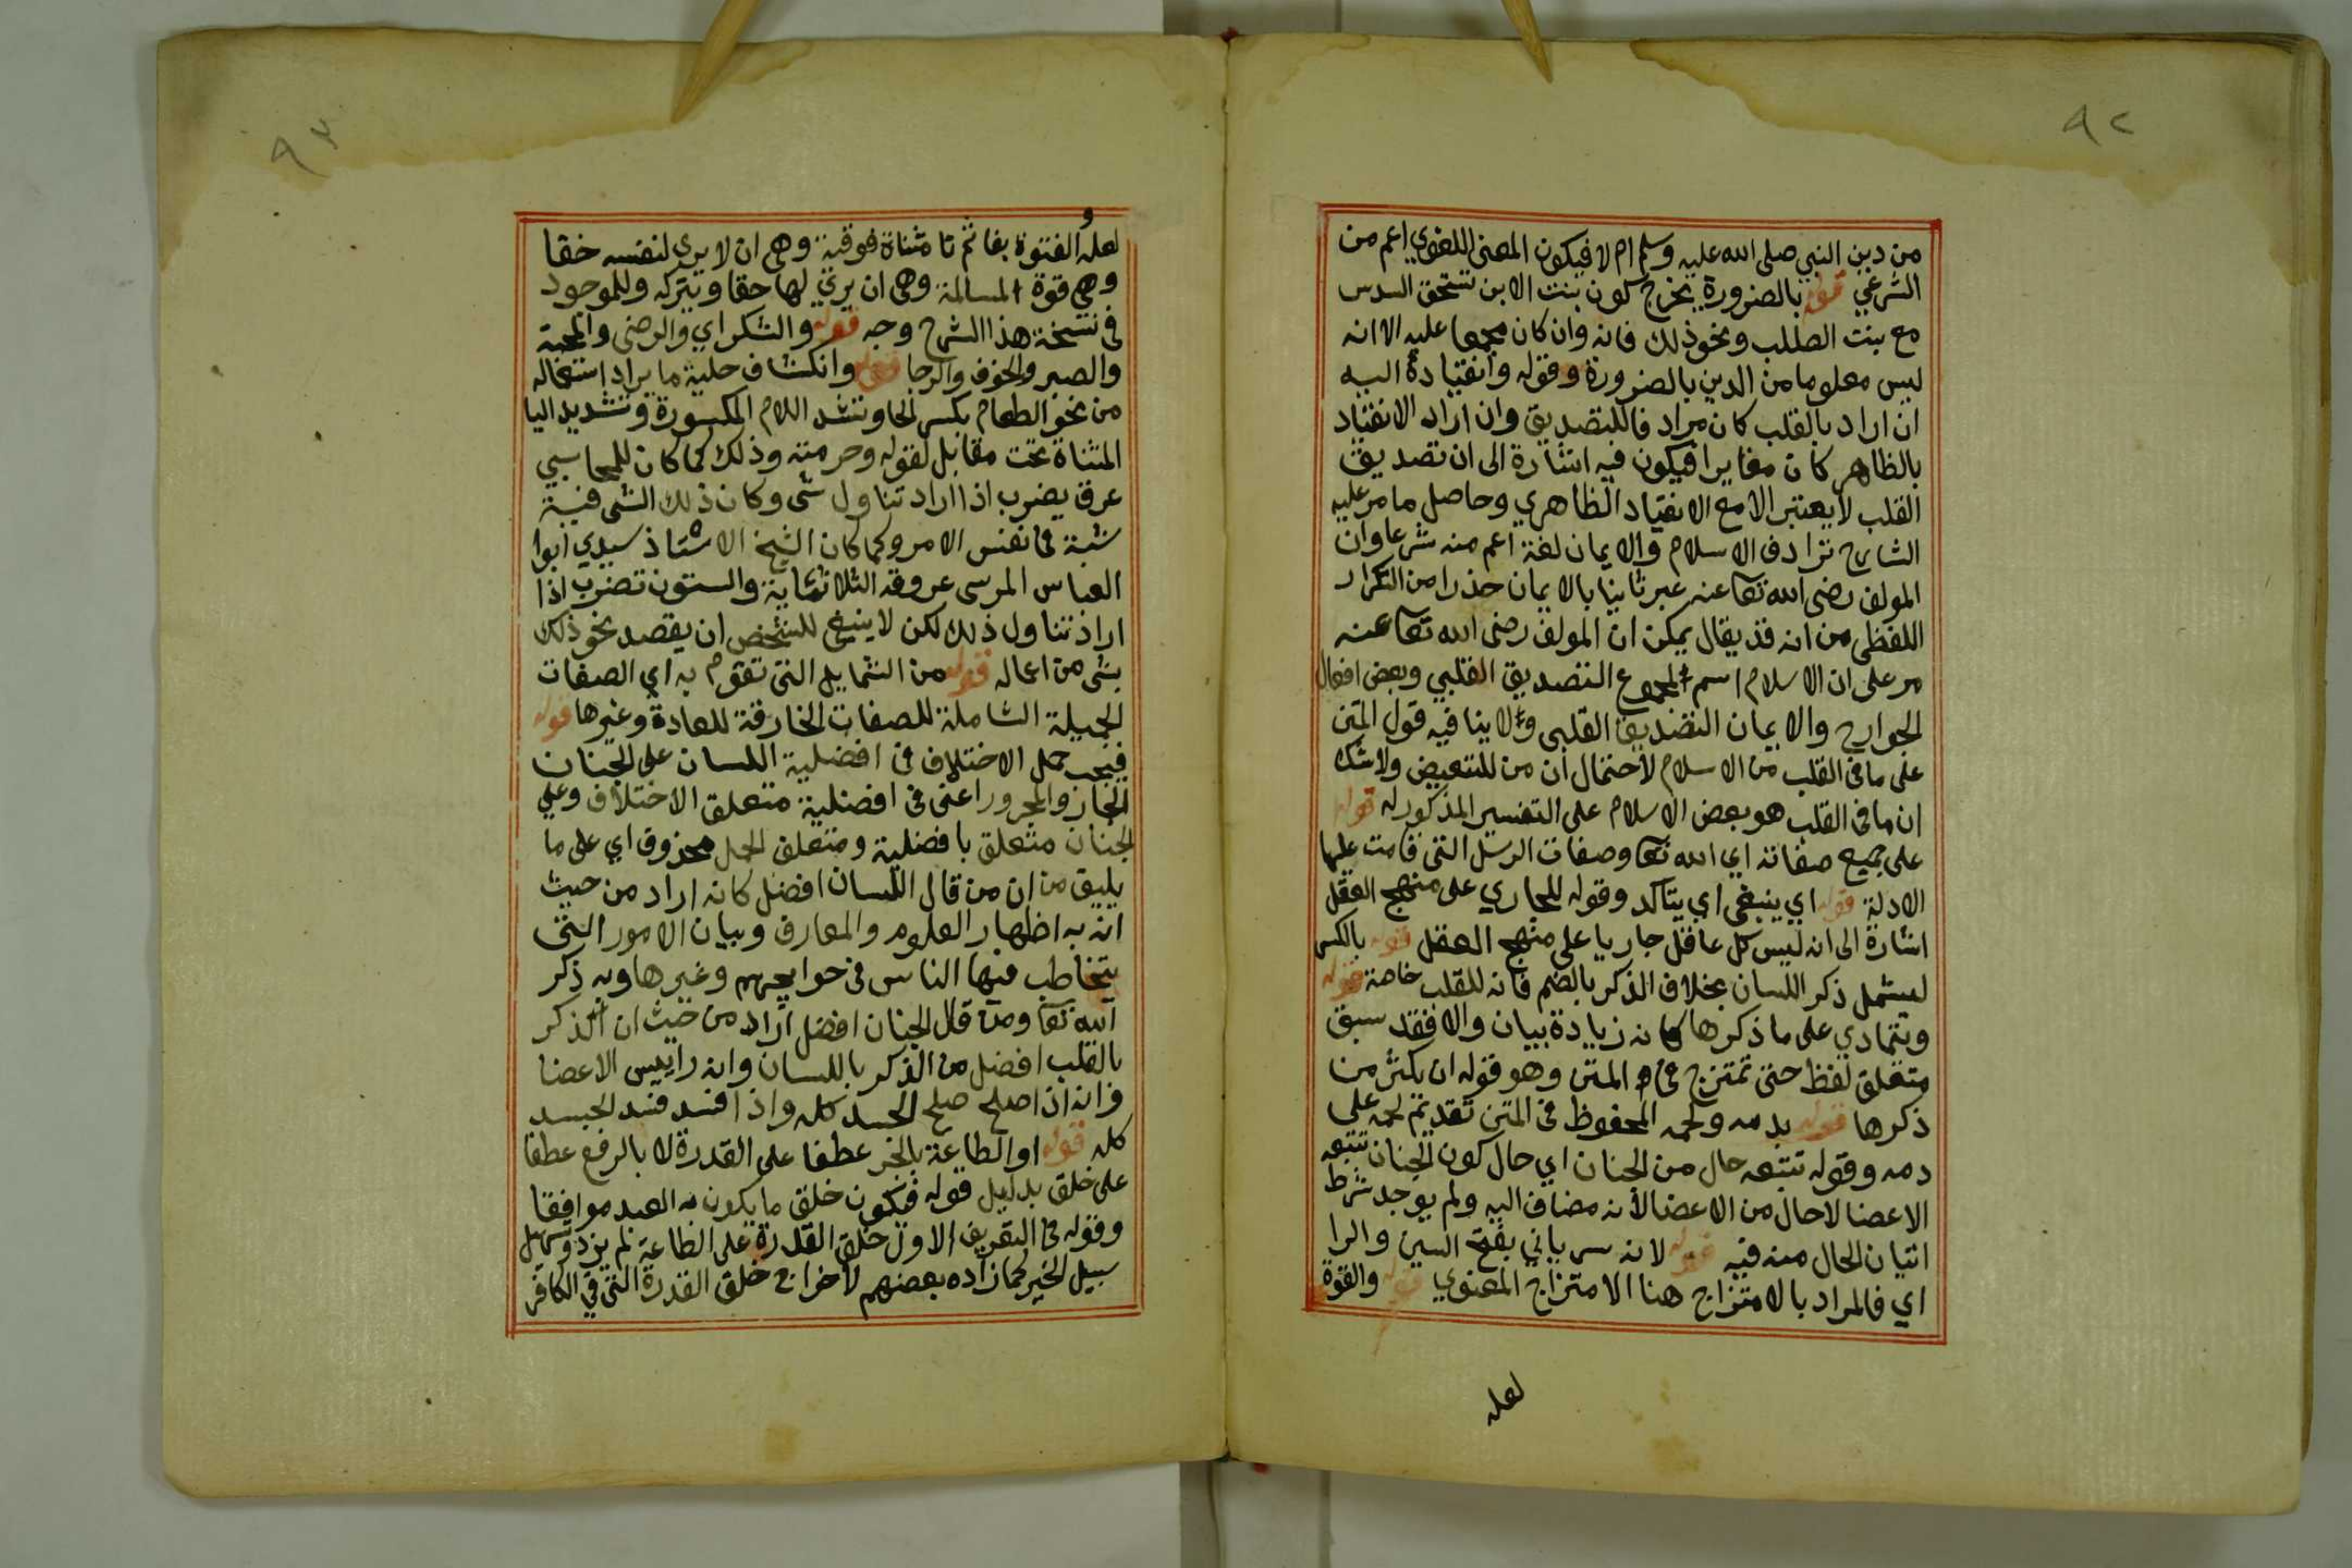 ٩٢
من دين النبي صلى الله عليه وسلم ام لا فيكون المعنى اللغوي اعم من
الشرعي قوله بالضرورة يخرج كون بنت الابن تستحق السدس
مع بنت الصلب ونحو ذلك فانه وان كان مجمعا عليه الا انه
ليس معلوما من الدين بالضرورة وقوله وانقياده اليه
ان اراد بالقلب كان مرادفا للتصديق وان اراد الانقياد
بالظاهر كان مغايرا فيكون فيه اشارة الى ان تصديق
القلب لا يعتبر الا مع الانقياد الظاهري وحاصل ما مر عليه
الشارح ترادف الاسلام والايمان لغة اعم منه شرعا وان
المولف رضى الله تعا عنه عبر ثانيا بالايمان حذرا من التكرار
اللفظي من انه قد يقال يمكن ان المولف رضى الله تعا عنه
مر على ان الاسلام اسم لمجموع التصديق القلبي وبعض افعال
الجوارح والايمان التصديق القلبى ولا ينافيه قول المتن
على ما في القلب من الاسلام لاحتمال ان من للتبعيض ولا شك
ان ما فى القلب هو بعض الاسلام على التفسير المذكور له قوله
على جميع صفاته اي الله تعا وصفات الرسل التى قامت عليها
الادلة قوله اي ينبغى اي يتاكد وقوله للجاري على منهج العقل
اشارة الى انه ليس كل عاقل جاريا على منهج العقل قوله بالكسر
ليشمل ذكر اللسان بخلاف الذكر بالضم فانه للقلب خاصة قوله
ويتمادي على ما ذكرها كانه زيادة بيان والا فقد سبق
متعلق لفظ حتى تمتزج في المتن وهو قوله ان يكثر من
ذكرها قوله بدمه ولحمه المحفوظ في المتن تقديم لحمه على
دمه وقوله تتبعه حال من الجنان اي حال كون الجنان تتبعه
الاعضا لا حال من الاعضا لانه مضاف اليه ولم يوجد شرط
اتيان الحال منه فيه قوله لانه سرياني بفتح السين والرا
اي فالمراد بالامتزاج هنا الامتزاج المعنوي قوله والقوة
لعله
٩٣
لعله والفتوة بفا ثم تا مثناة فوقية وهي ان لا يرى لنفسه حقا
وهي قوة المسالمة وهى ان يري لها حقا ويتركه وللموجود
فى نسخة هذا الشرح وجه قوله والشكر اي والرضى والمحبة
والصبر والخوف والرجا قوله وانكشاف حلية ما يراد استعماله
من نحو الطعام بكسر الحا وتشد اللام المكسورة وتشديد اليا
المثناة تحت مقابل لقوله وحرمته وذلك كما كان للمحاسبي
عرق يضرب اذا اراد تناول شى وكان ذلك الشى فيه
شبهة في نفس الامر وكما كان الشيخ الاستاذ سيدي ابوا
العباس المرسى عروقه الثلاثماية والستون تضرب اذا
اراد تناول ذلك لكن لا ينبغي للشخص ان يقصد نحو ذلك
بشى من اعماله قوله من الشمايل التى تقوم به اي الصفات
الجميلة الشاملة للصفات الخارقة للعادة وغيرها قوله
فيجب حمل الاختلاف في افضلية اللسان على الجنان
الجار والمجرور اعني فى افضلية متعلق الاختلاف وعلي
الجنان متعلق بافضلية ومتعلق الحمل محذوف اي على ما
يليق من ان من قال اللسان افضل كانه اراد من حيث
انه به اظهار العلوم والمعارف وبيان الامور التى
يتخاطب فيها الناس في حوايجهم وغيرها وبه ذكر
الله تعا ومن قال الجنان افضل اراد من حيث ان الذكر
بالقلب افضل من الذكر باللسان وانه راييس الاعضا
وانه اذا صلح صلح الجسد كله واذا فسد فسد الجسد
كله قوله او الطاعة بالجر عطفا على القدرة لا بالرفع عطفا
على خلق بدليل قوله فيكون خلق ما يكون به العبد موافقا
وقوله فى التعريف الاول خلق القدرة على الطاعة لم يزد وتسهيل
سبيل الخير كما زاده بعضهم لاخراج خلق القدرة التى في الكافر